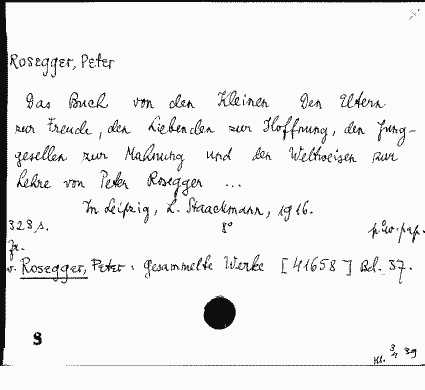 Rosegger, Peter
Das Buch von den Kleinen Den Eltern
zur Freude, den Liebenden zur Hoffnung, den Jung-
gesellen zur Mahnung und den Weltweisen zur
Lehre von Peter Rosegger ...
In Leipzig, L. Staackmann, 1916.
323 s. 8°
v. Rosegger, Peter: Gesammelte Werke [41658] Bd. 37.
8